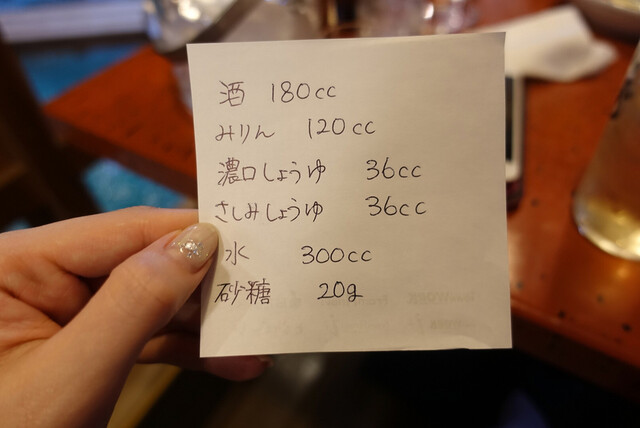 酒 180cc
みりん 120cc
濃口しょうゆ 36cc
さしみしょうゆ 36cc
水 300cc
砂糖 20g